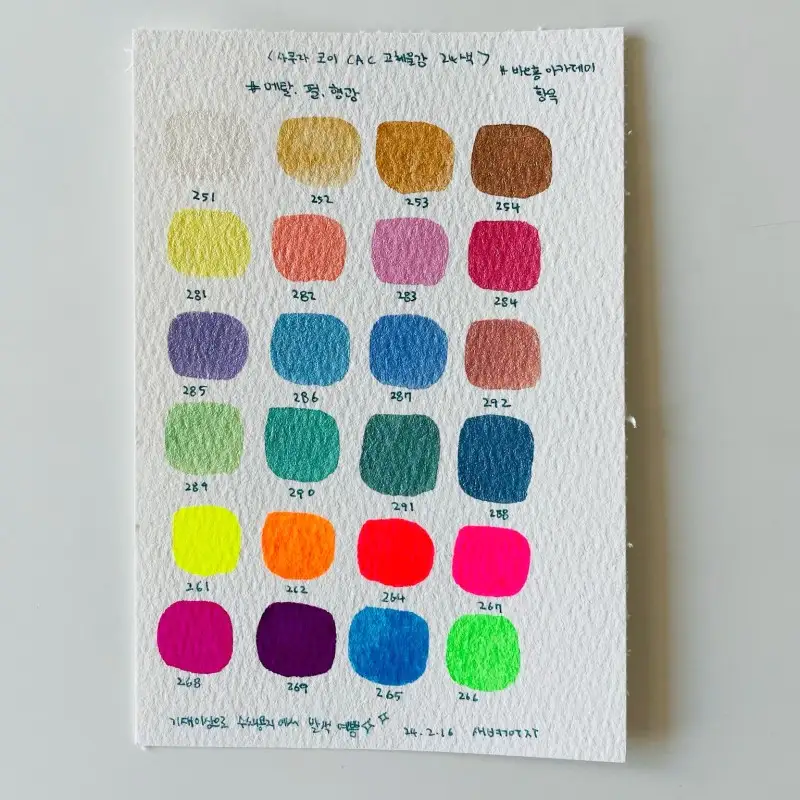 <사쿠라 코이 CAC 고체물감 24색>
# 바brush홍 아카데미
# 메탈. 펄. 형광
황옥
251 252 253 254
281 282 283 284
285 286 287 292
289 290 291 288
261 262 264 267
268 269 265 266
기대이상으로 수채용지에서 발색 예쁨
24.2.16